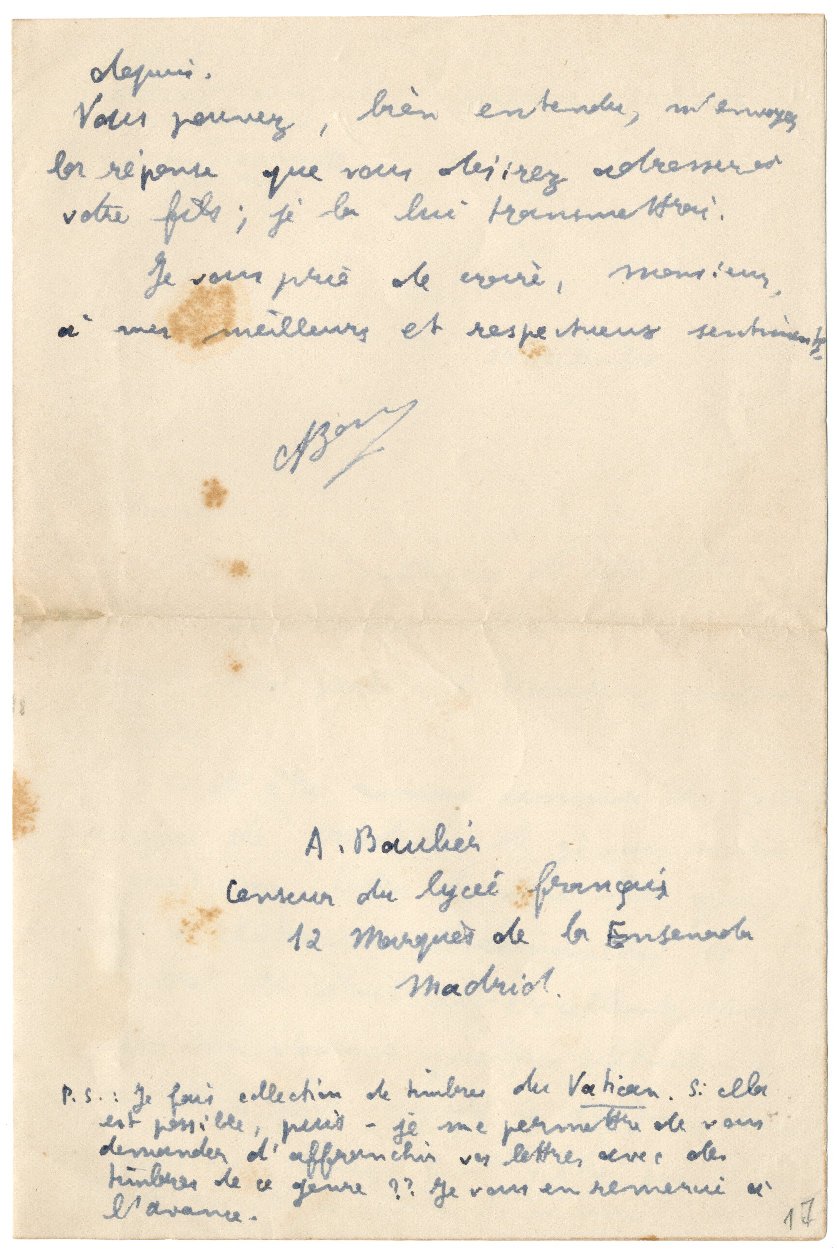 depuis.
Vous pouvez, bien entendu, m'envoyer
la réponse que vous désirez adresser à
votre fils ; je la lui transmettrai.
Je vous prie de croire, monsieur,
à mes meilleurs et respectueux sentiments.
A. Baulier
Censeur du lycée français
12 Marquès de la Ensenada
Madrid.
P.S. : Je fais collection de timbres du Vatican. Si cela
est possible, puis-je me permettre de vous
demander d'affranchir vos lettres avec des
timbres de ce genre ?? Je vous en remercie à
l'avance.
17